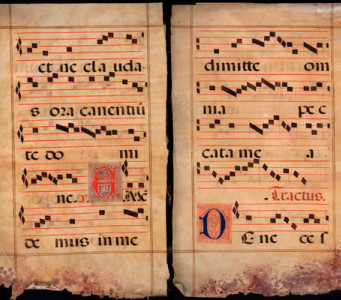 et ne clauda
s ora canentiū
te do mi
ne.
de mus in me
dimitte om
nia pec
cata me a
Tractus.